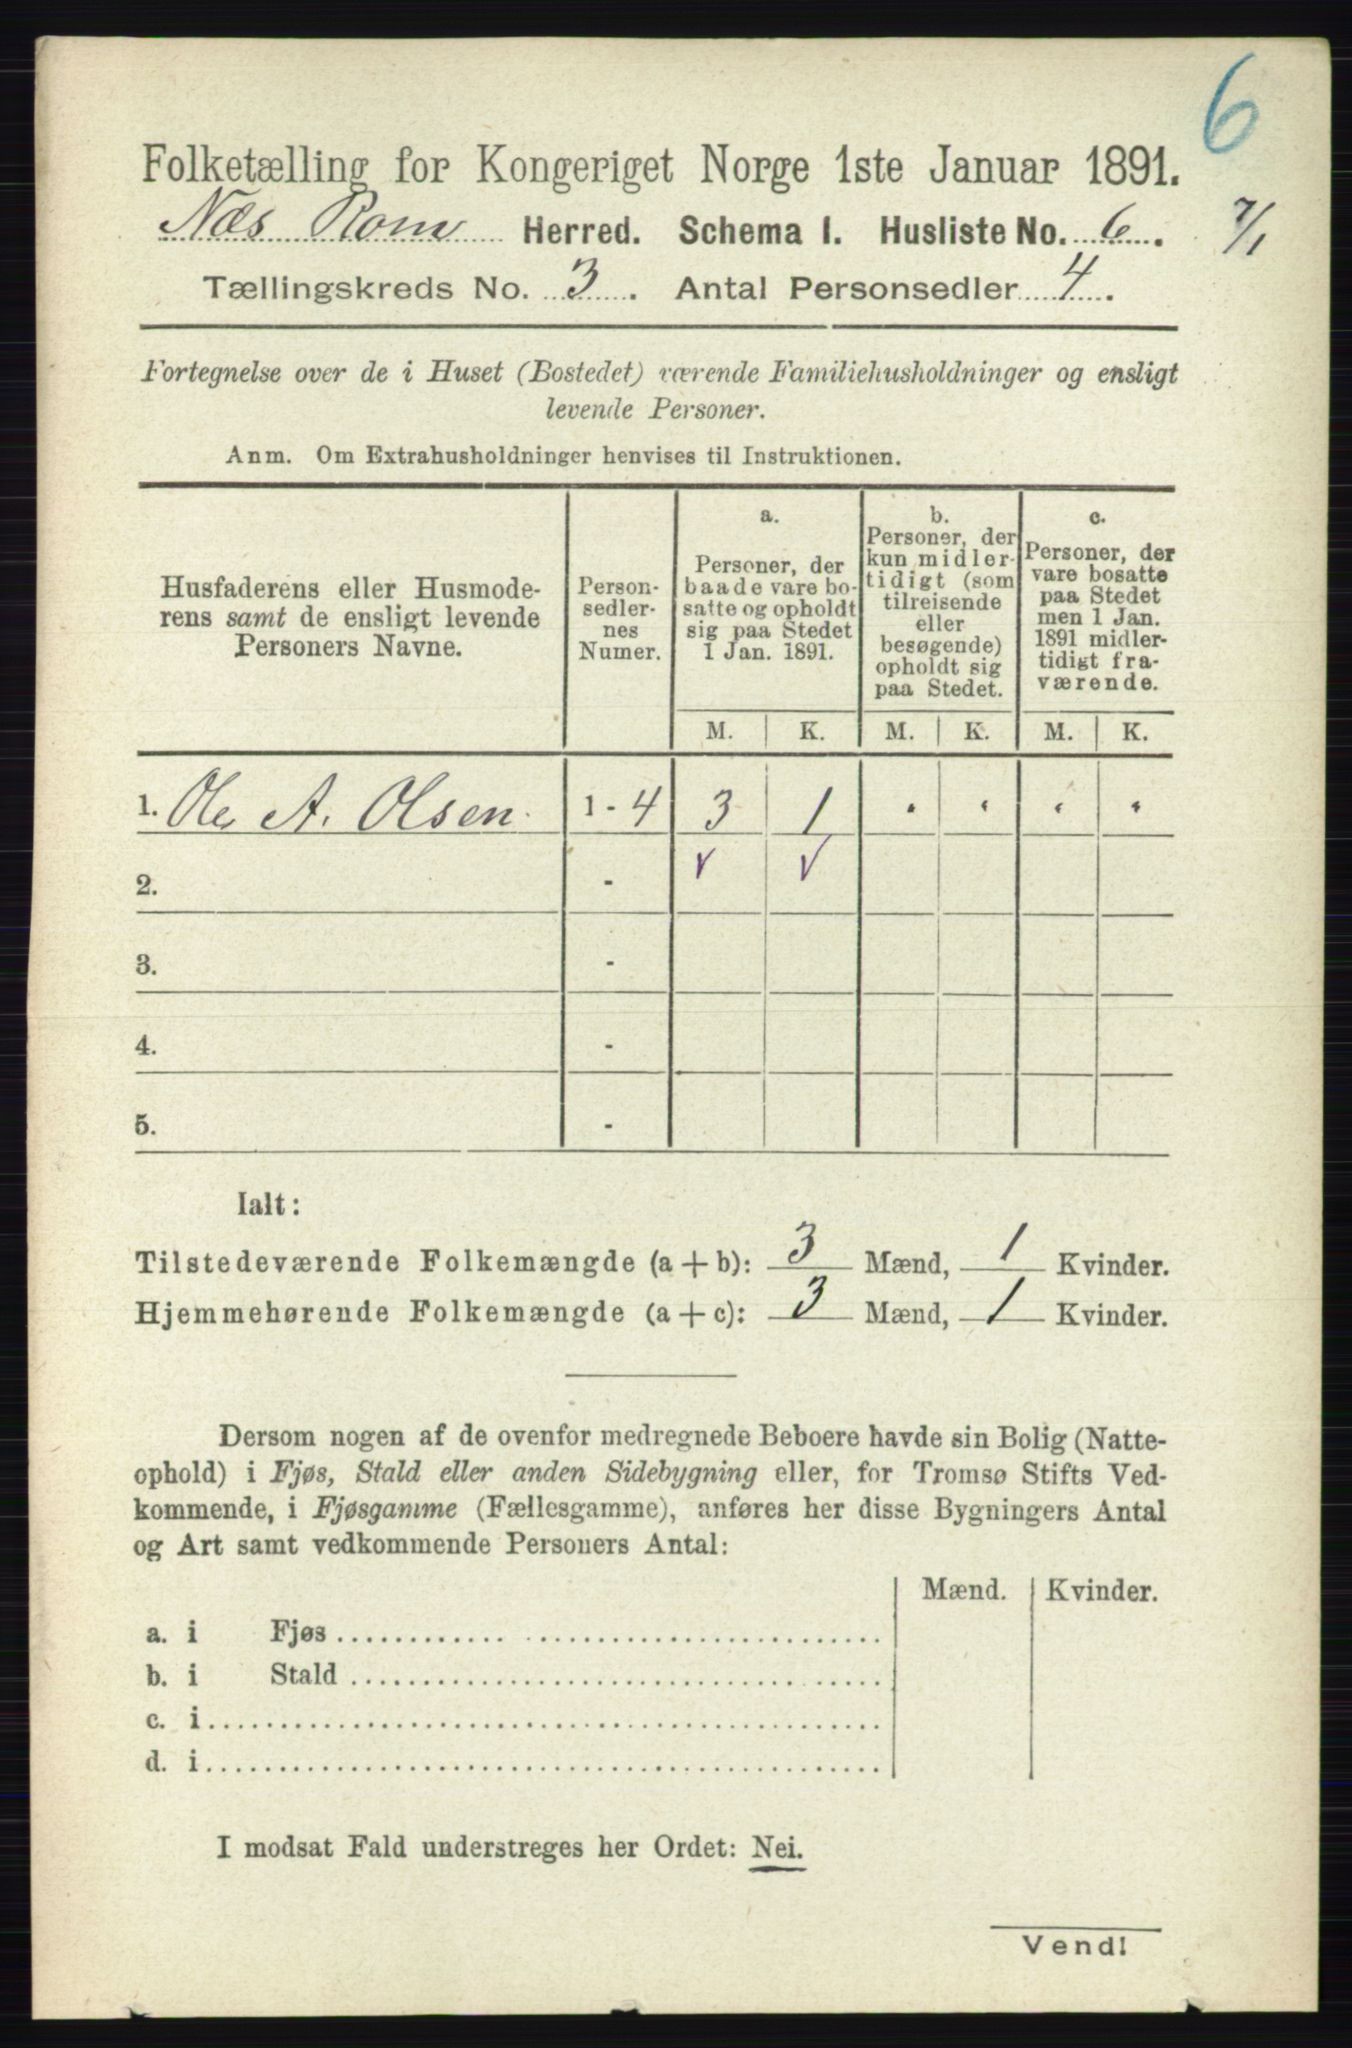 6
Folketælling for Kongeriget Norge 1ste Januar 1891.
Næs Rom Herred. Schema I. Husliste No. 6. 7/1
Tællingskreds No. 3. Antal Personsedler 4.
Fortegnelse over de i Huset (Bostedet) værende Familiehusholdninger og ensligt
levende Personer.
Anm. Om Extrahusholdninger henvises til Instruktionen.
Husfaderens eller Husmode-
rens samt de ensligt levende
Personers Navne.
Person-
sedler-
nes
Numer.
a.
Personer, der
baade vare bo-
satte og opholdt
sig paa Stedet
1 Jan. 1891.
b.
Personer, der
kun midler-
tidigt (som
tilreisende
eller
besøgende)
opholdt sig
paa Stedet.
c.
Personer, der
vare bosatte
paa Stedet
men 1 Jan.
1891 midler-
tidigt fra-
værende.
M. K. M. K. M. K.
1. Ole A. Olsen. 1 - 4 3 1 " " " "
2. - ✓ ✓
3. -
4. -
5. -
Ialt:
Tilstedeværende Folkemængde (a + b): 3 Mænd, 1 Kvinder.
Hjemmehørende Folkemængde (a + c): 3 Mænd, 1 Kvinder.
Dersom nogen af de ovenfor medregnede Beboere havde sin Bolig (Natte-
ophold) i Fjøs, Stald eller anden Sidebygning eller, for Tromsø Stifts Ved-
kommende, i Fjøsgamme (Fællesgamme), anføres her disse Bygningers Antal
og Art samt vedkommende Personers Antal:
Mænd. Kvinder.
a. i Fjøs
b. i Stald
c. i
d. i
I modsat Fald understreges her Ordet: Nei.
Vend!